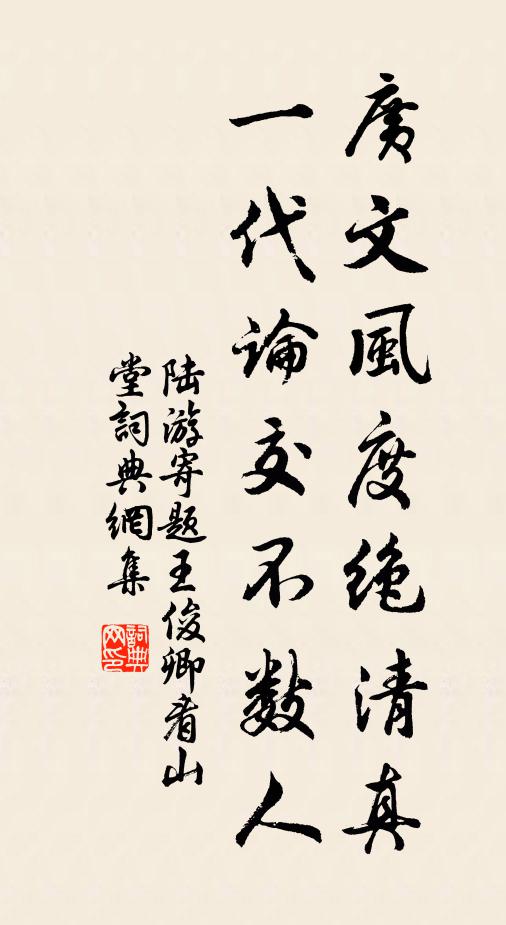 廣文風度絶清真
一代論交不數人
陆游寄题王俊卿看山
堂詞典網集
詞典
网印